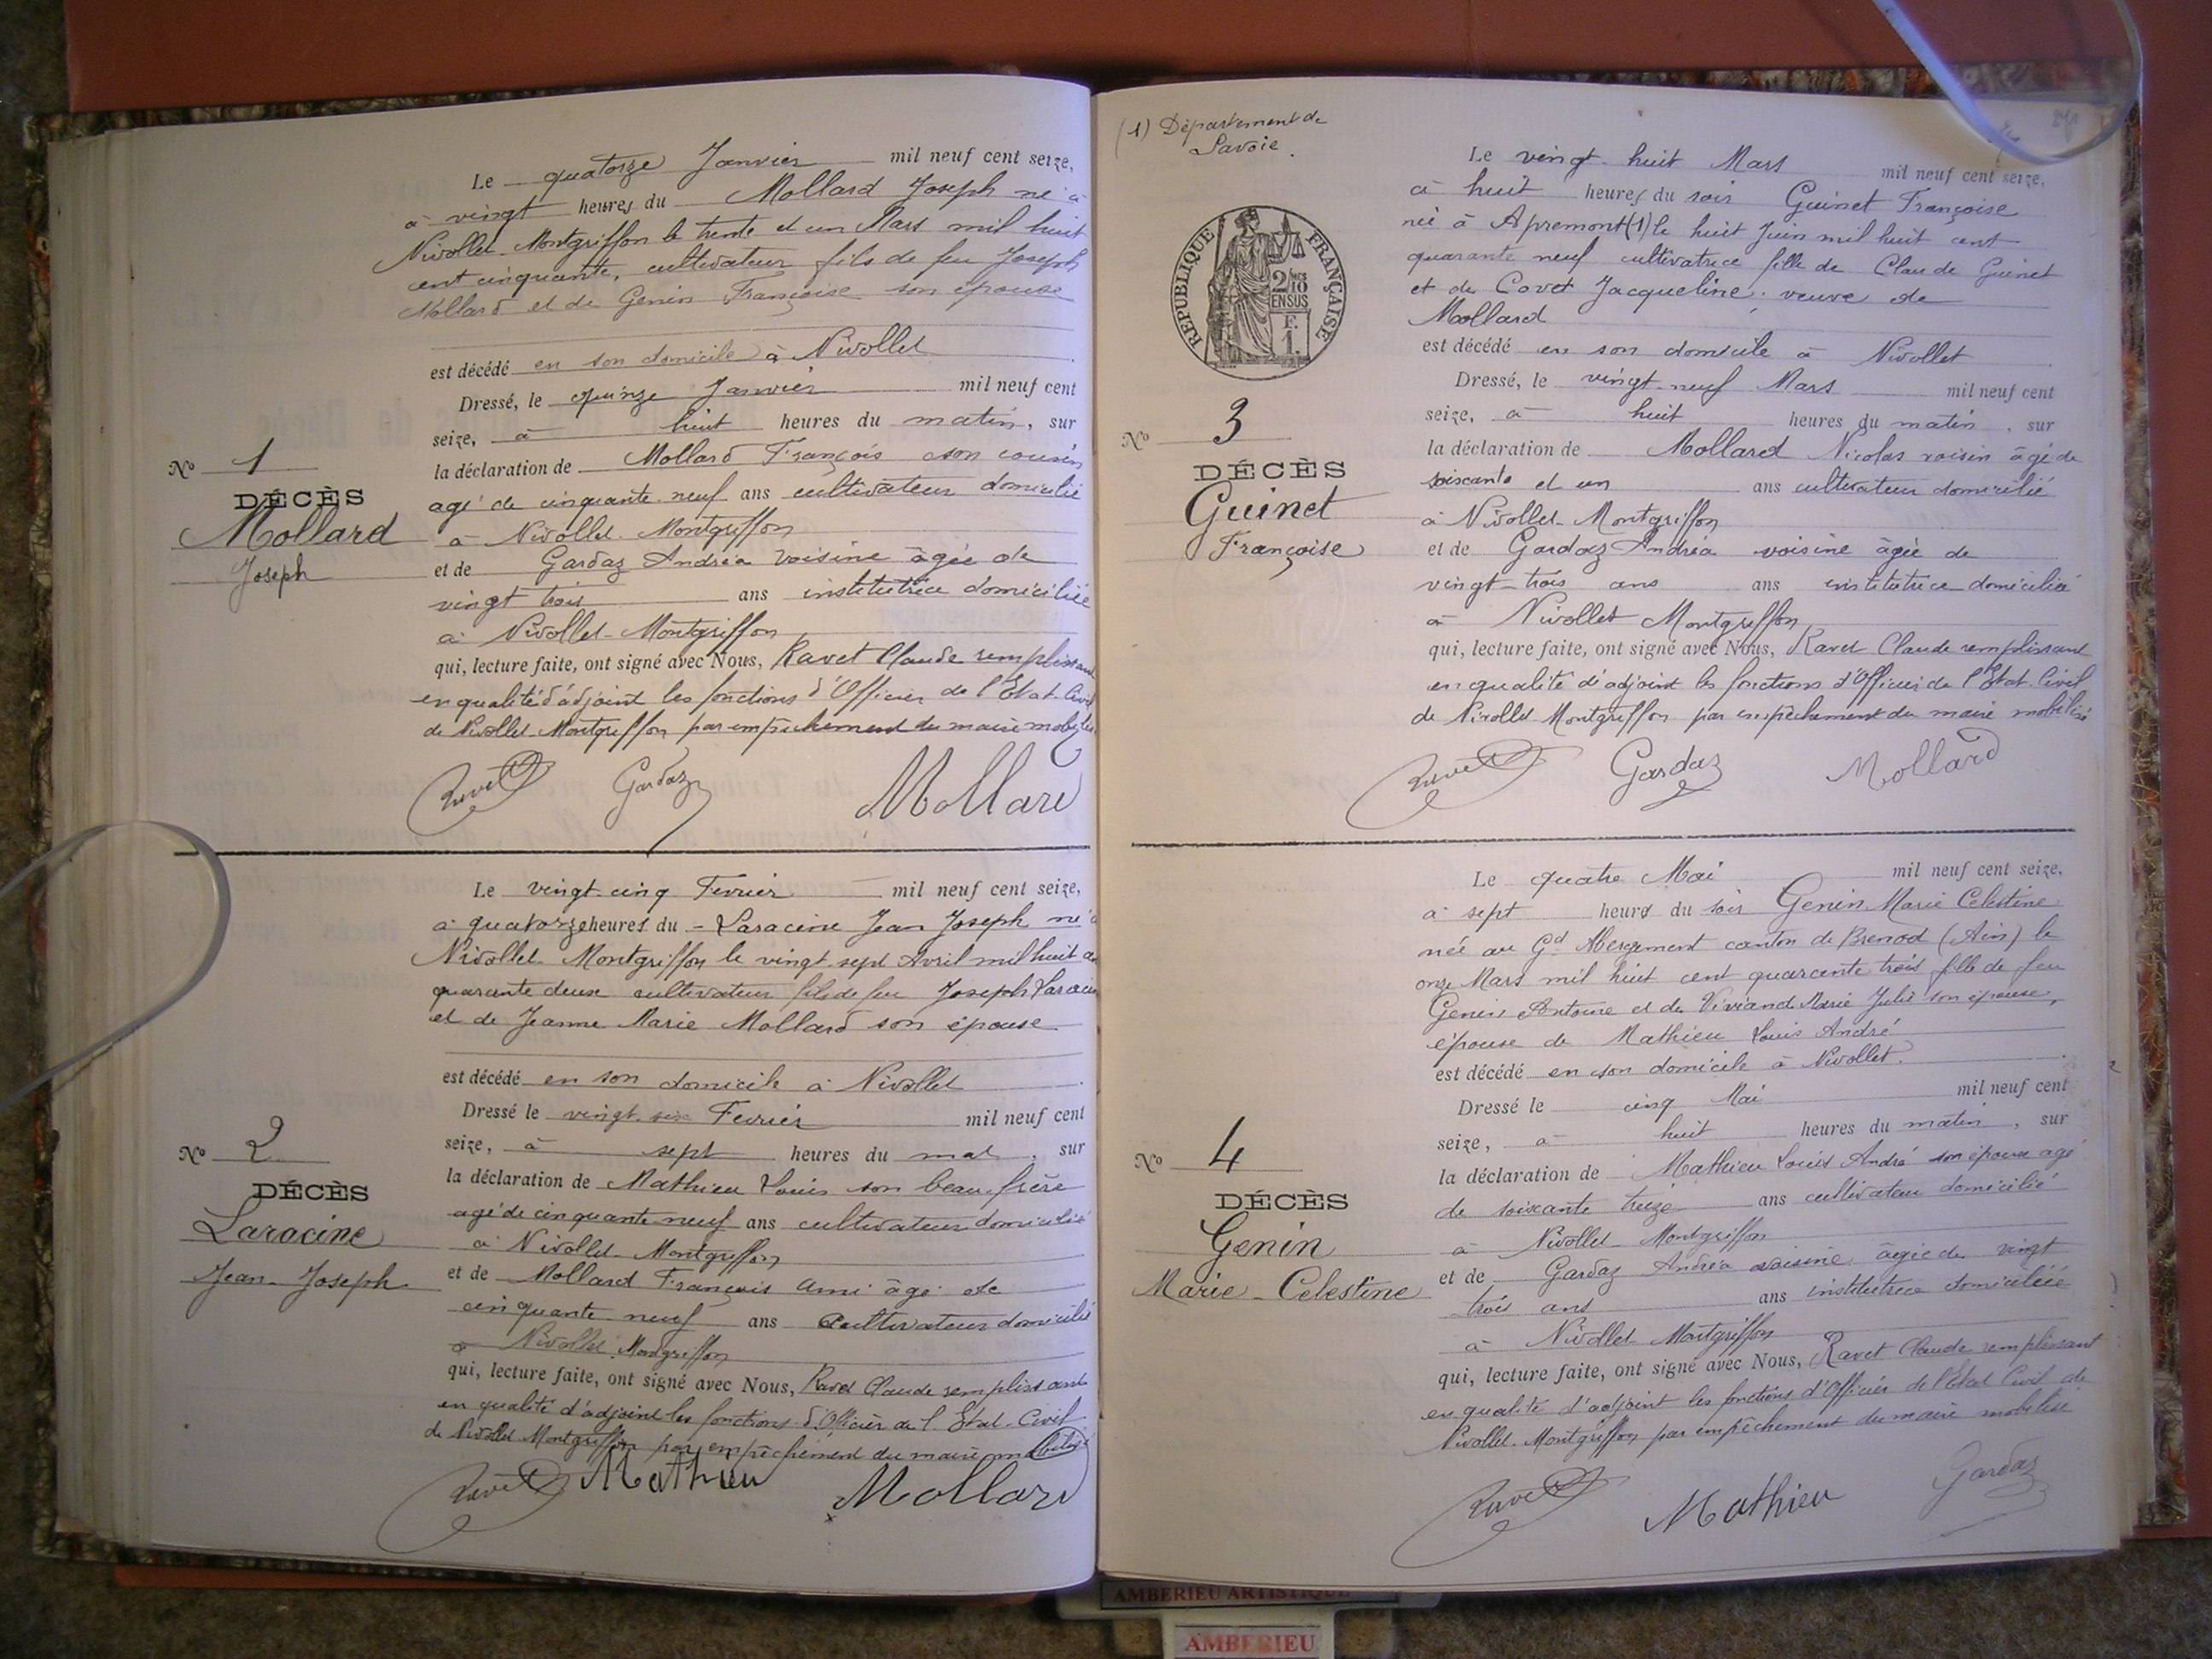 Le quatorze Janvier mil neuf cent seize,
à vingt heures du Mollard Joseph né à
Nivollet-Montgriffon le trente et un Mars mil huit
cent cinquante, cultivateur fils de feu Joseph
Mollard et de Genin Françoise son épouse
est décédé en son domicile à Nivollet
Dressé, le quinze Janvier mil neuf cent
seize, à huit heures du matin, sur
la déclaration de Mollard François son cousin
agé de cinquante neuf ans cultivateur domicilié
à Nivollet-Montgriffon
et de Gardaz Andréa voisine âgée de
vingt trois ans institutrice domiciliée
à Nivollet-Montgriffon
qui, lecture faite, ont signé avec Nous, Ravet Claude remplissant
en qualité d'adjoint les fonctions d'Officier de l'Etat-Civil
de Nivollet-Montgriffon par empêchement du maire mobilisé
Ravet Gardaz Mollard
Nº 1
DÉCÈS
Mollard
Joseph
Le vingt-cinq Fevrier mil neuf cent seize,
à quatorze heures du - Laracine Jean Joseph né à
Nivollet-Montgriffon le vingt-sept Avril mil huit
quarante deux cultivateur fils de feu Joseph Laracine
et de Jeanne Marie Mollard son épouse
est décédé en son domicile à Nivollet
Dressé le vingt-six Fevrier mil neuf cent
seize, à sept heures du mat, sur
la déclaration de Mathieu Louis son beau-frère
agé de cinquante neuf ans cultivateur domicilié
à Nivollet-Montgriffon
et de Mollard François ami âgé de
cinquante neuf ans cultivateur domicilié
à Nivollet Montgriffon
qui, lecture faite, ont signé avec Nous, Ravet Claude remplissant
en qualité d'adjoint les fonctions d'Officier de l'Etat-Civil
de Nivollet-Montgriffon par empêchement du maire mobilisé
Ravet Mathieu Mollard
Nº 2
DÉCÈS
Laracine
Jean-Joseph
(1) Département de
Savoie.
RÉPUBLIQUE FRANÇAISE
2/10 MES
EN SUS
F.
1.
Le vingt-huit Mars mil neuf cent seize,
à huit heures du soir Guinet Françoise
née à Apremont (1) le huit Juin mil huit cent
quarante neuf cultivatrice fille de Claude Guinet
et de Covet Jacqueline, veuve de
Mollard
est décédé en son domicile à Nivollet
Dressé, le vingt-neuf Mars mil neuf cent
seize, à huit heures du matin, sur
la déclaration de Mollard Nicolas voisin âgé de
soixante et un ans cultivateur domicilié
à Nivollet-Montgriffon
et de Gardaz Andréa voisine âgée de
vingt-trois ans ans institutrice domiciliée
à Nivollet Montgriffon
qui, lecture faite, ont signé avec Nous, Ravet Claude remplissant
en qualité d'adjoint les fonctions d'Officier de l'Etat-Civil
de Nivollet-Montgriffon par empêchement du maire mobilisé
Ravet Gardaz Mollard
Nº 3
DÉCÈS
Guinet
Françoise
Le quatre Mai mil neuf cent seize,
à sept heures du soir Genin Marie Celestine
née au Gd Abergement canton de Brenod (Ain) le
onze Mars mil huit cent quarante trois fille de feu
Genin Antoine et de Viviand Marie Julie son épouse,
épouse de Mathieu Louis André
est décédé en son domicile à Nivollet.
Dressé le cinq Mai mil neuf cent
seize, à huit heures du matin, sur
la déclaration de Mathieu Louis André son époux agé
de soixante treize ans cultivateur domicilié
à Nivollet-Montgriffon
et de Gardaz Andréa voisine âgée de vingt
trois ans ans institutrice domiciliée
à Nivollet-Montgriffon
qui, lecture faite, ont signé avec Nous, Ravet Claude remplissant
en qualité d'adjoint les fonctions d'Officier de l'Etat Civil de
Nivollet-Montgriffon par empêchement du maire mobilisé
Ravet Mathieu Gardaz
Nº 4
DÉCÈS
Genin
Marie-Celestine
AMBERIEU ARTISTIQUE
AMBERIEU